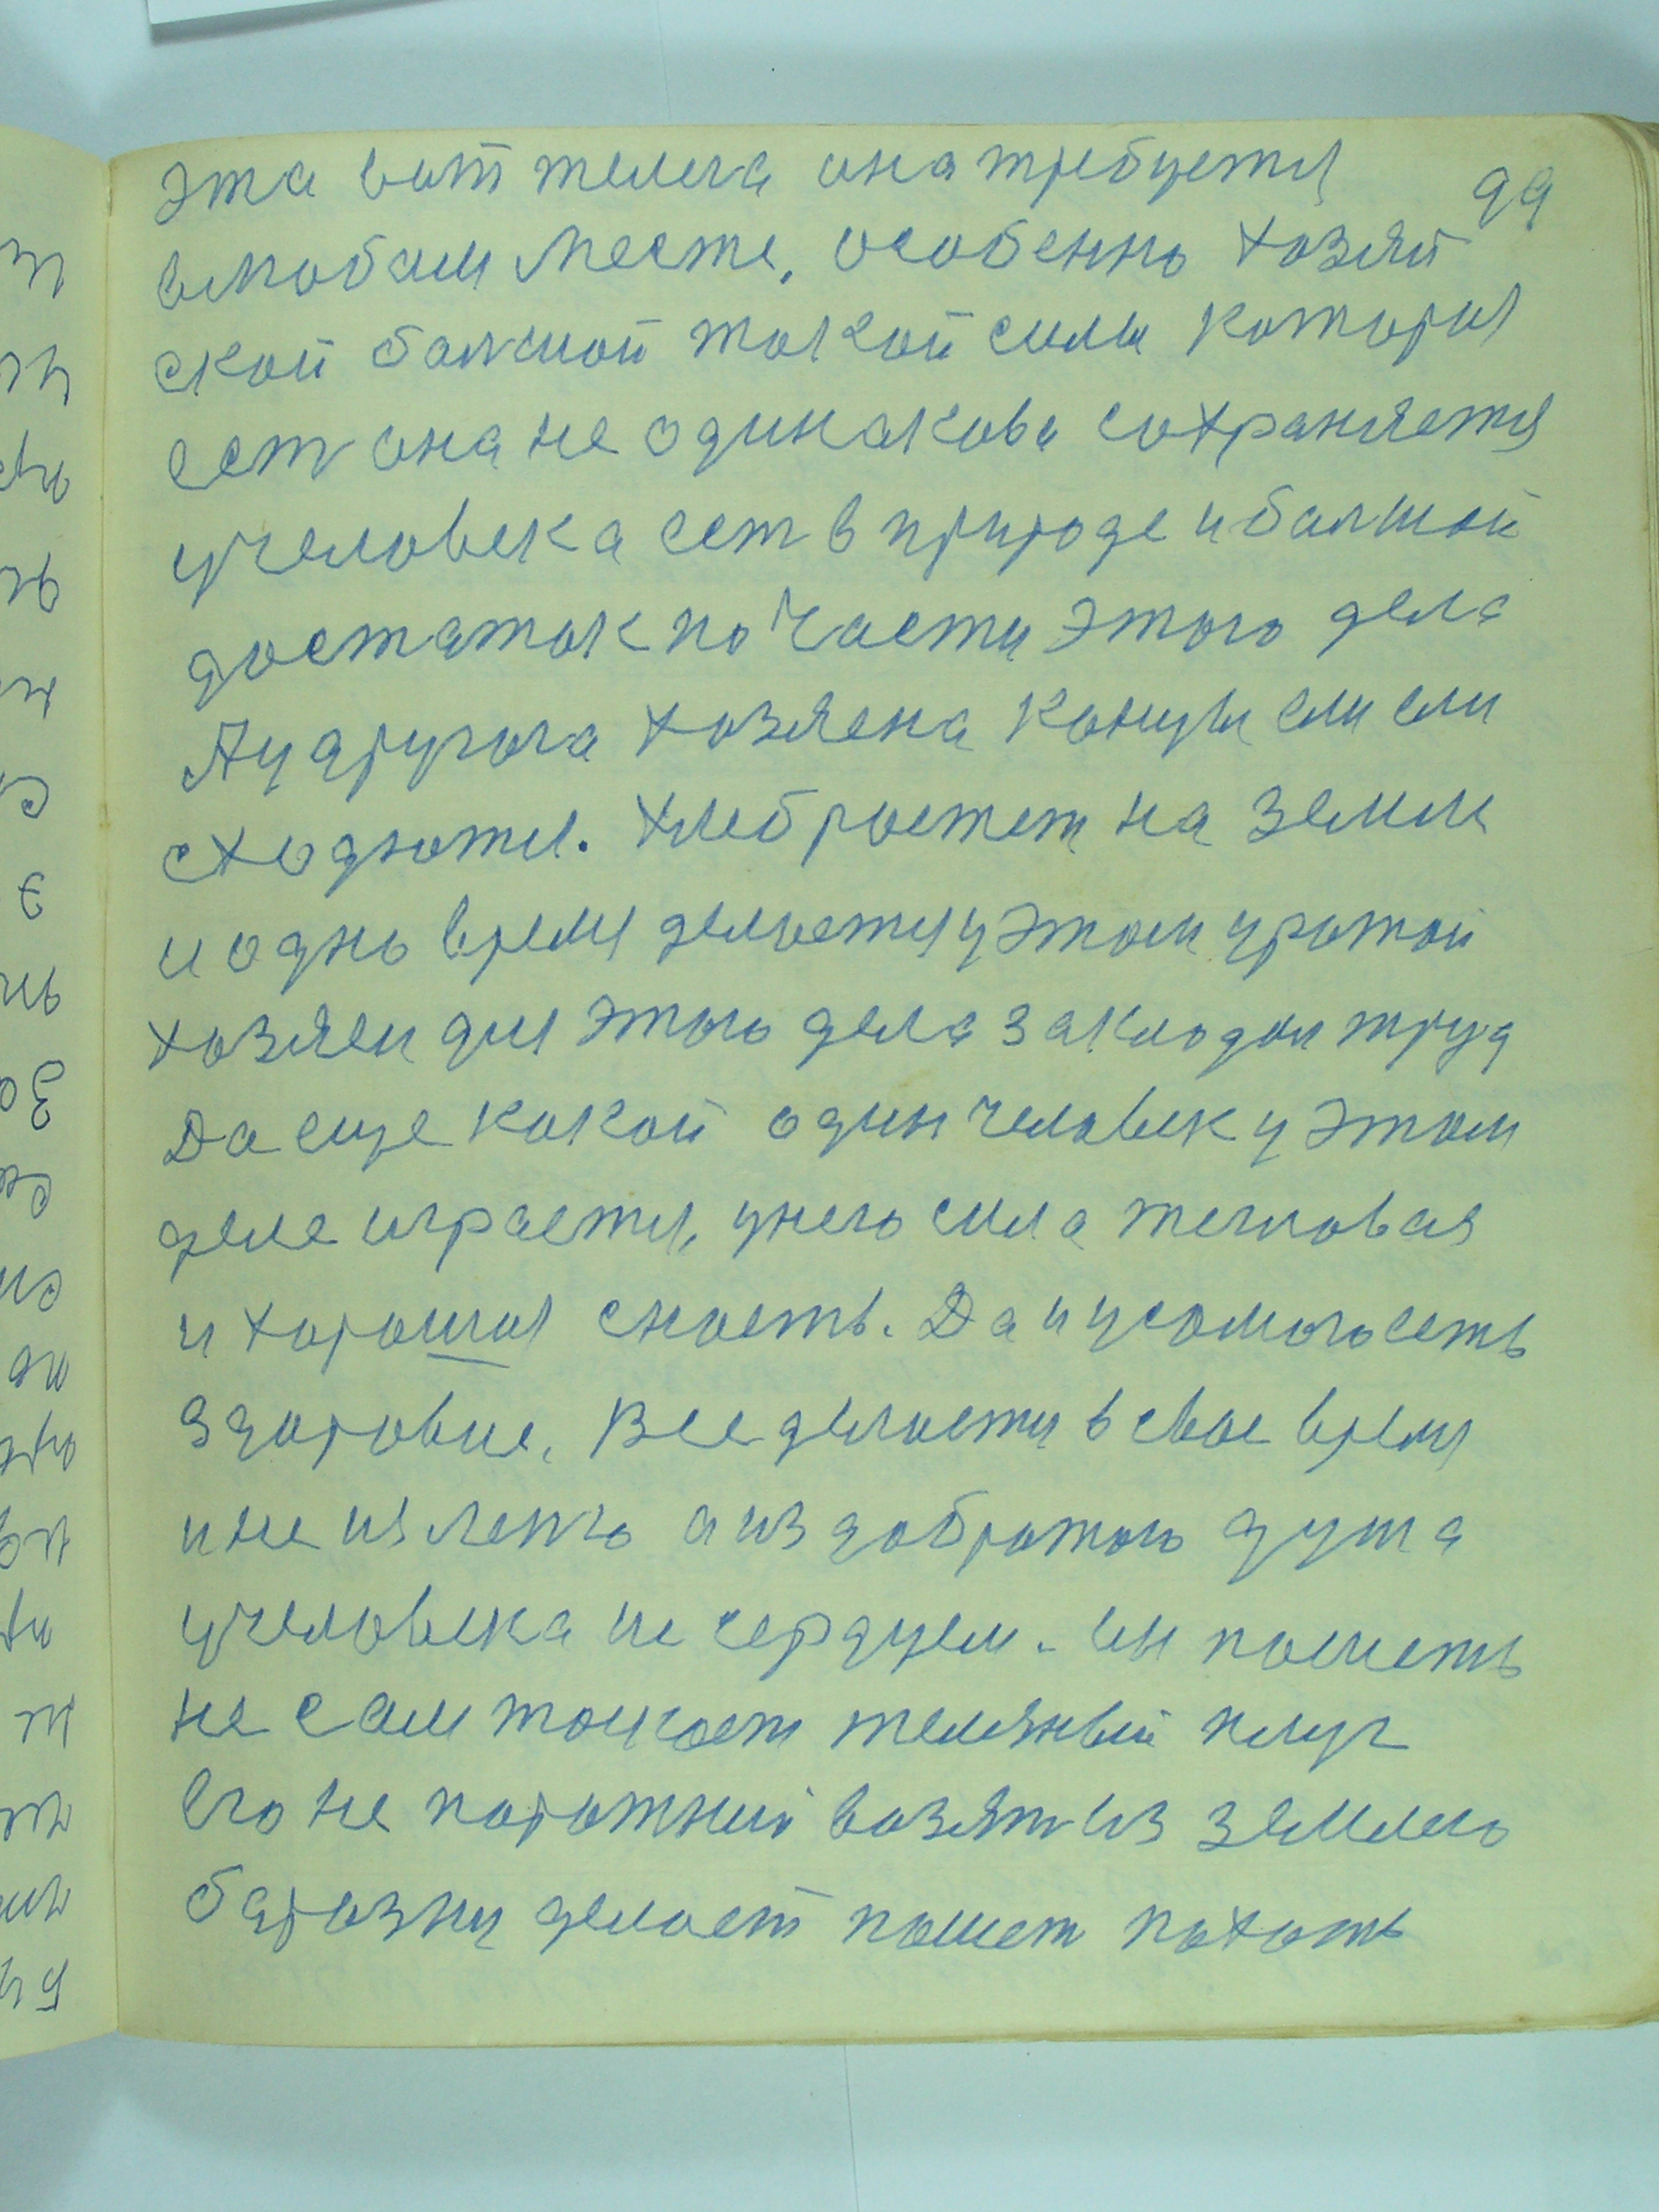 99
эта вот телега она требуется
влюбом месте, особенно хозяй
ской балшой такой силы которая
ест она не одинакова сохраняется
учеловека ест в природе и балшой
достаток по части этого дела
Ау другога хозяена концы ели ели
сходются. Хлеб ростет на земле
и одно время делается у этом гратой
хозяен для этого дела закладал труд
Да еще какой один человек у этом
деле играется, унего сила тегловая
и хорошая снасть. Да и усамого есть
здоровие. Все делается в свое время
и не из лень а из добратою душа
учеловека и сердцем. ён пошеть
не сам толкает теляный плуг
его не парожний возять из землею
барозну делает пошет пахать